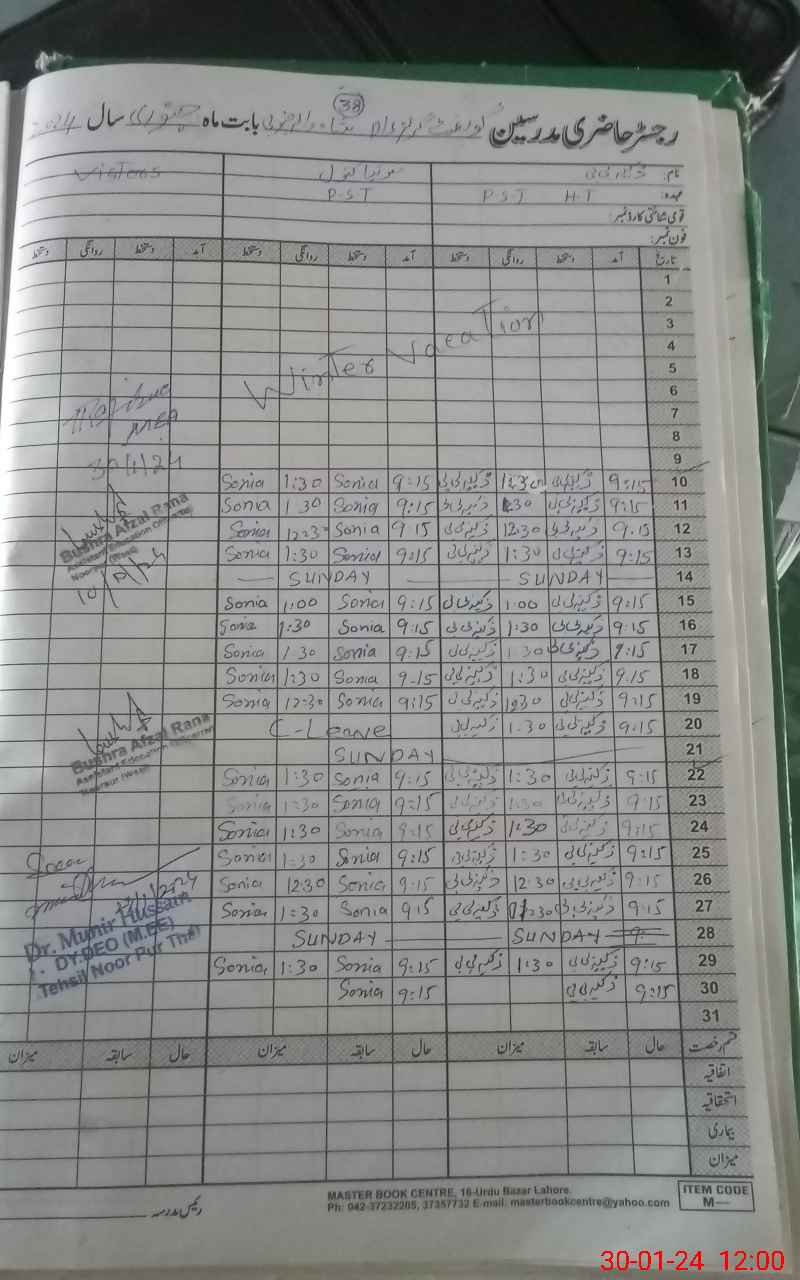 38
رجسٹر حاضری مدرسین گورنمنٹ گرلز بابت ماہ جنوری سال 2024
نام: ذکیہ بی بی سونیا کنول Vistors
عہدہ: P.S.T H.T P.S.T
قومی شناختی کارڈ نمبر:
فون نمبر:
تاریخ آمد دستخط روانگی دستخط آمد دستخط روانگی دستخط آمد دستخط روانگی دستخط
1
2
3
4
5
Winter Vacation
6
7
8
MEA
9
30/1/24
10 9:15 ذکیہ بی بی 1:30 ذکیہ بی بی 9:15 Sonia 1:30 Sonia
11 9:15 ذکیہ بی بی 1:30 ذکیہ بی بی 9:15 Sonia 1 30 Sonia
12 9.15 ذکیہ بی بی 12:30 ذکیہ بی بی 9 15 Sonia 12:30 Sonia
13 9:15 ذکیہ بی بی 1:30 ذکیہ بی بی 9:15 Sonia 1:30 Sonia
Bushra Afzal Rana
Assistant Education Officer
Noorpur (West)
14 SUNDAY SUNDAY
15 9:15 ذکیہ بی بی 1:00 ذکیہ بی بی 9:15 Sonia 1:00 Sonia
16 9:15 ذکیہ بی بی 1:30 ذکیہ بی بی 9:15 Sonia 1:30 Sonia
17 9:15 ذکیہ بی بی 1 30 ذکیہ بی بی 9:15 Sonia 1.30 Sonia
18 9.15 ذکیہ بی بی 1:30 ذکیہ بی بی 9.15 Sonia 1:30 Sonia
19 9:15 ذکیہ بی بی ذکیہ بی بی 9:15 Sonia 12:30 Sonia
20 9:15 ذکیہ بی بی 1:30 ذکیہ بی بی C-Leave
21 SUNDAY
Bushra Afzal Rana
Assistant Education Officer
Noorpur (West)
22 9:15 ذکیہ بی بی 1:30 ذکیہ بی بی 9:15 Sonia 1:30 Sonia
23 9:15 ذکیہ بی بی 1:30 ذکیہ بی بی 9:15 Sonia 1:30 Sonia
24 9:15 ذکیہ بی بی 1:30 ذکیہ بی بی 9:15 Sonia 1:30 Sonia
25 9:15 ذکیہ بی بی 1:30 ذکیہ بی بی 9:15 Sonia 1:30 Sonia
26 9:15 ذکیہ بی بی 12:30 ذکیہ بی بی 9:15 Sonia 12:30 Sonia
27 9:15 ذکیہ بی بی ذکیہ بی بی 9:15 Sonia 1:30 Sonia
28 SUNDAY SUNDAY
Dr. Munir Hussain
DY.DEO (M.EE)
Tehsil Noor Pur Thal
29 9:15 ذکیہ بی بی 1:30 ذکیہ بی بی 9:15 Sonia 1:30 Sonia
30 9:15 ذکیہ بی بی 9:15 Sonia
31
قسم رخصت حال سابقہ میزان حال سابقہ میزان حال سابقہ میزان
اتفاقیہ
استحقاقیہ
بیماری
میزان
رئیس مدرسہ
MASTER BOOK CENTRE, 16-Urdu Bazar Lahore.
Ph: 042-37232265, 37357732 E-mail. masterbookcentre@yahoo.com
ITEM CODE
M—
30-01-24 12:00